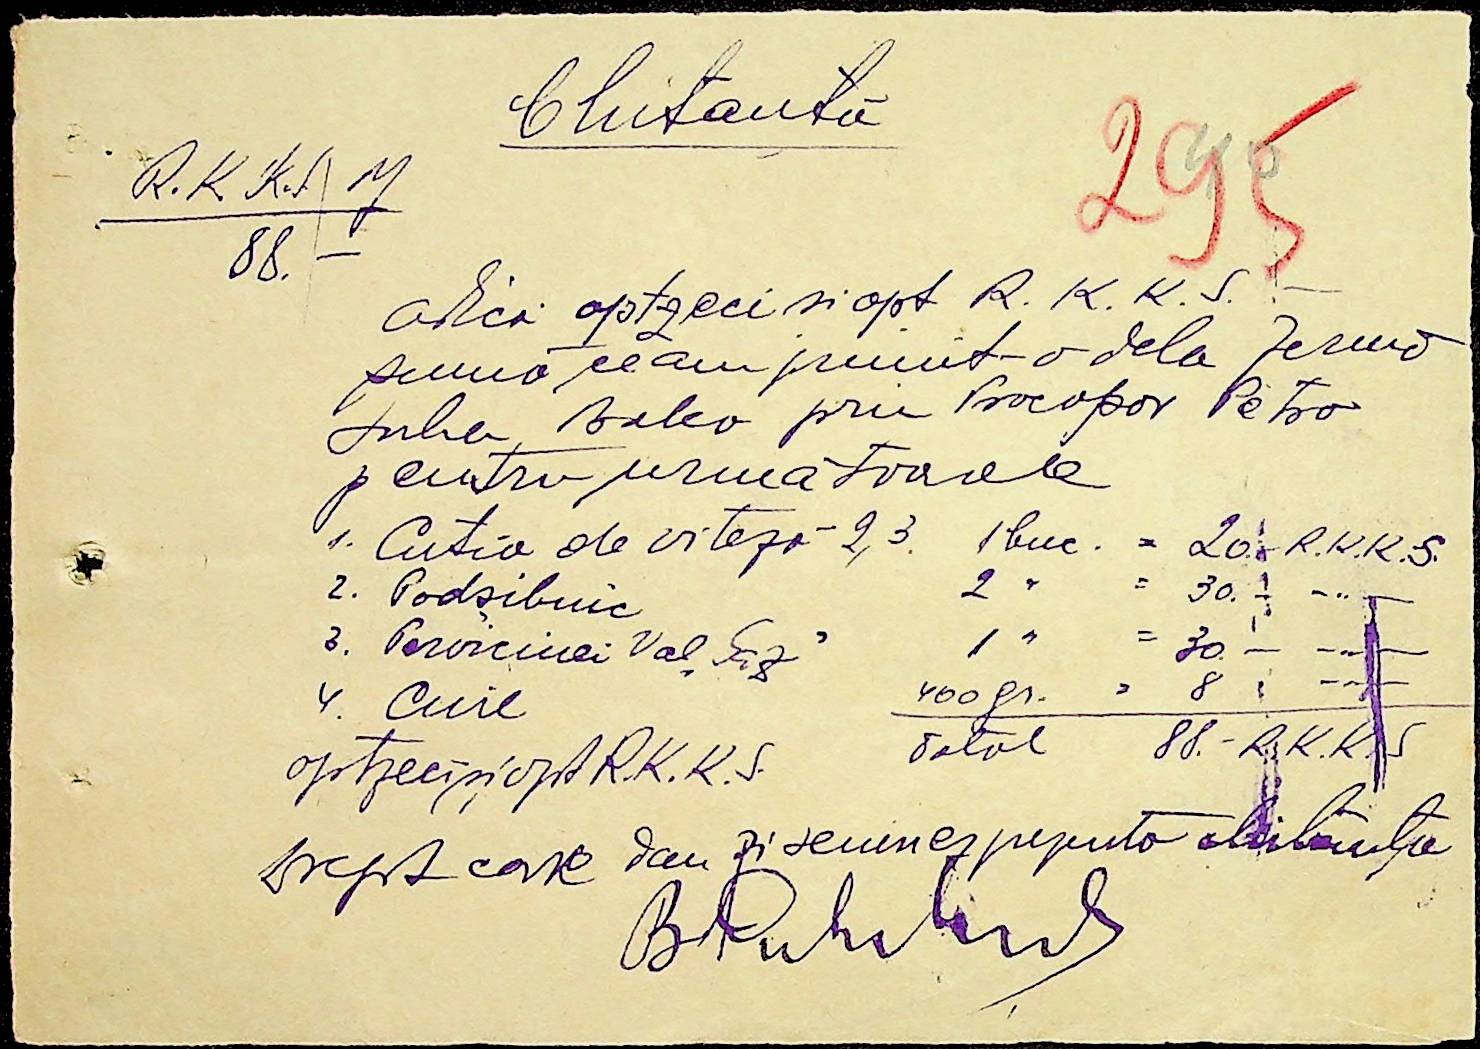 Chitanță
295
R.K.K.S.
88.-
adică optzeci și opt R.K.K.S.
sumă ce am primit-o dela Ferma
prin Procopov Petro
pentru urmatoarele
1. Cutia de viteză 2,3. 1 buc. = 20.- R.K.K.S.
2. Podșibnic 2 " = 30.- -"-
3. Pervicinei Val 1 " = 30.- -"-
4. Cuie 400 gr. = 8 -"-
Total 88.- R.K.K.S
optzeci și opt R.K.K.S.
Drept care dau și semnez prezenta chitanța